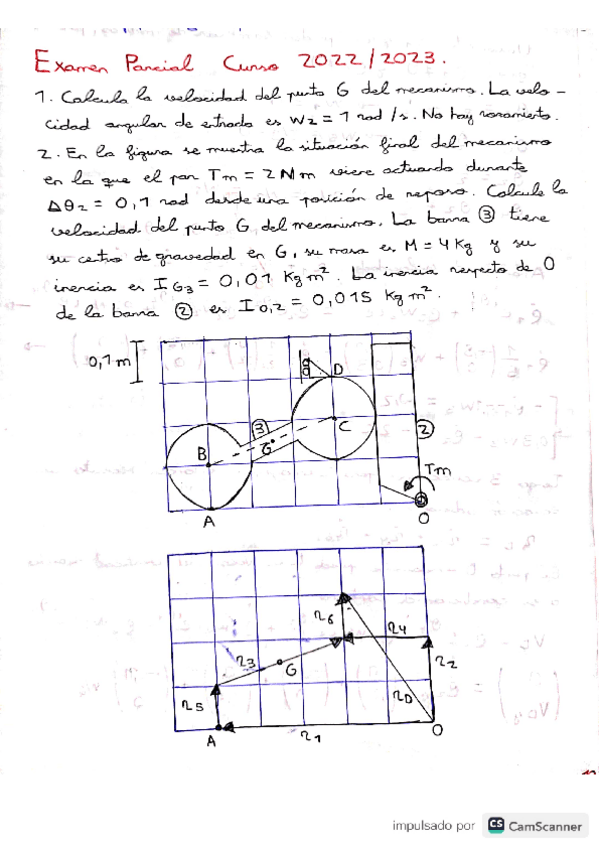 Examen Parcial Curso 2022/2023.
1. Calcula la velocidad del punto G del mecanismo. La velo-
cidad angular de entrada es W2 = 1 rad/s. No hay rozamiento.
2. En la figura se muestra la situación final del mecanismo
en la que el par Tm = 2 N m viene actuando durante
Δθ2 = 0,1 rad desde una posición de reposo. Calcule la
velocidad del punto G del mecanismo. La barra ③ tiene
su centro de gravedad en G, su masa es M = 4 Kg y su
inercia es IG3 = 0,01 Kg m². La inercia respecto de O
de la barra ② es IO,2 = 0,015 Kg m².
0,1 m
D
B
3
G
C
2
Tm
A
O
r6
r4
r3
G
r2
r5
rD
A
r1
O
impulsado por CS CamScanner